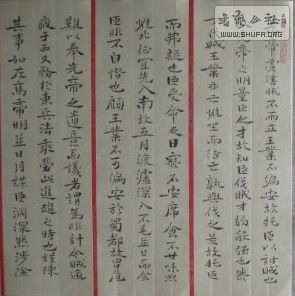 书艺公社
WWW.SHUFA.ORG
帝慮漢賊不兩立王業不偏安故托臣以討賊也
帝之明量臣之才故知臣伐賊才弱敵強也然
不伐賊王業亦亡惟坐而待亡孰與伐之是故托臣
而弗疑也臣受命之日寢不安席食不甘味思
惟北征宜先入南故五月渡瀘深入不毛並日而食
臣非不自惜也顧王業不可偏安於蜀都故冒危
難以奉先帝之遺意而議者謂為非計今賊適
疲于西又務於東兵法乘勞此進趨之時也謹陳
其事如左高帝明並日月謀臣淵深然涉險